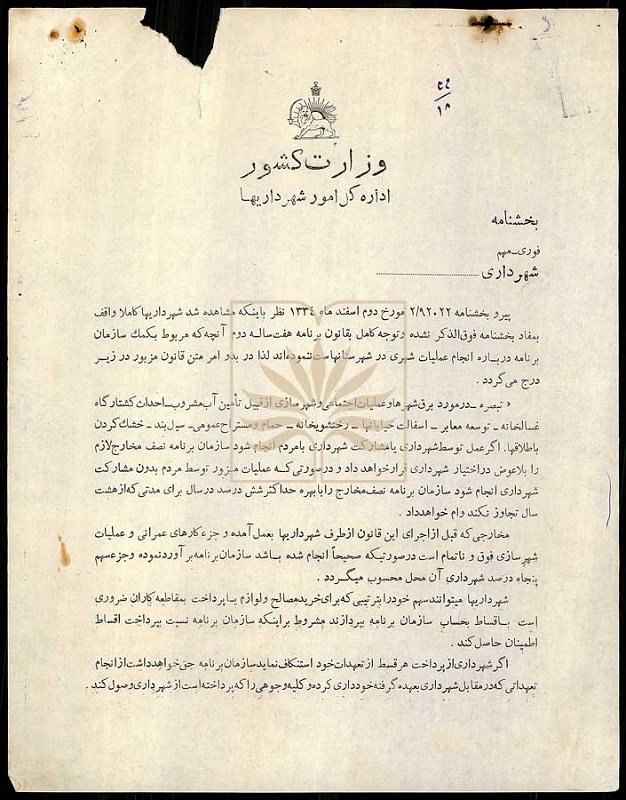 ٥٤
١٨
وزارت کشور
اداره کل امور شهرداریها
بخشنامه
فوری ـ مهم
شهرداری ........................
پیرو بخشنامه ٢/٩٢٠٢٢ مورخ دوم اسفند ماه ١٣٣٤ نظر باینکه مشاهده شد شهرداریها کاملا واقف
بمفاد بخشنامه فوق‌الذکر نشده وتوجه کامل بقانون برنامه هفت‌ساله دوم آنچه که مربوط بکمك سازمان
برنامه درباره انجام عملیات شهری در شهرستانهاست ننموده‌اند لذا در بدو امر متن قانون مزبور در زیر
درج می‌گردد .
« تبصره ـ درمورد برق شهرها وعملیات اجتماعی وشهرسازی ازقبیل تأمین آب مشروب ـ احداث کشتارگاه
غسالخانه ـ توسعه معابر ـ اسفالت خیابانها ـ رختشویخانه ـ حمام ومستراح عمومی ـ سیل‌بند ـ خشك کردن
باطلاقها. اگر عمل توسط شهرداری یا مشارکت شهرداری بامردم انجام شود سازمان برنامه نصف مخارج لازم
را بلاعوض دراختیار شهرداری قرارخواهد داد و درصورتی‌کـه عملیات مزبور توسط مردم بدون مشارکت
شهرداری انجام شود سازمان برنامه نصف مخارج را با بهره حداکثر شش درصد درسال برای مدتی که ازهشت
سال تجاوز نکند وام خواهد داد.
مخارجی که قبل از اجرای این قانون ازطرف شهرداریها بعمل آمده و جزء کارهای عمرانی و عملیات
شهرسازی فوق و ناتمام است درصورتیکه صحیحاً انجام شده باشد سازمان برنامه برآوردنموده وجزء سهم
پنجاه درصد شهرداری آن محل محسوب میگردد .
شهرداریها میتوانند سهم خودرا بترتیبی که برای خرید مصالح ولوازم یا پرداخت بمقاطعه کاران ضروری
است باقساط بحساب سازمان برنامه بپردازند مشروط براینکه سازمان برنامه نسبت بپرداخت اقساط
اطمینان حاصل کند .
اگر شهرداری از پرداخت هرقسط از تعهدات خود استنکاف نماید سازمان برنامه حق خواهد داشت از انجام
تعهداتی که درمقابل شهرداری بعهده گرفته خودداری کرده و کلیه وجوهی را که پرداخته است از شهرداری وصول کند .